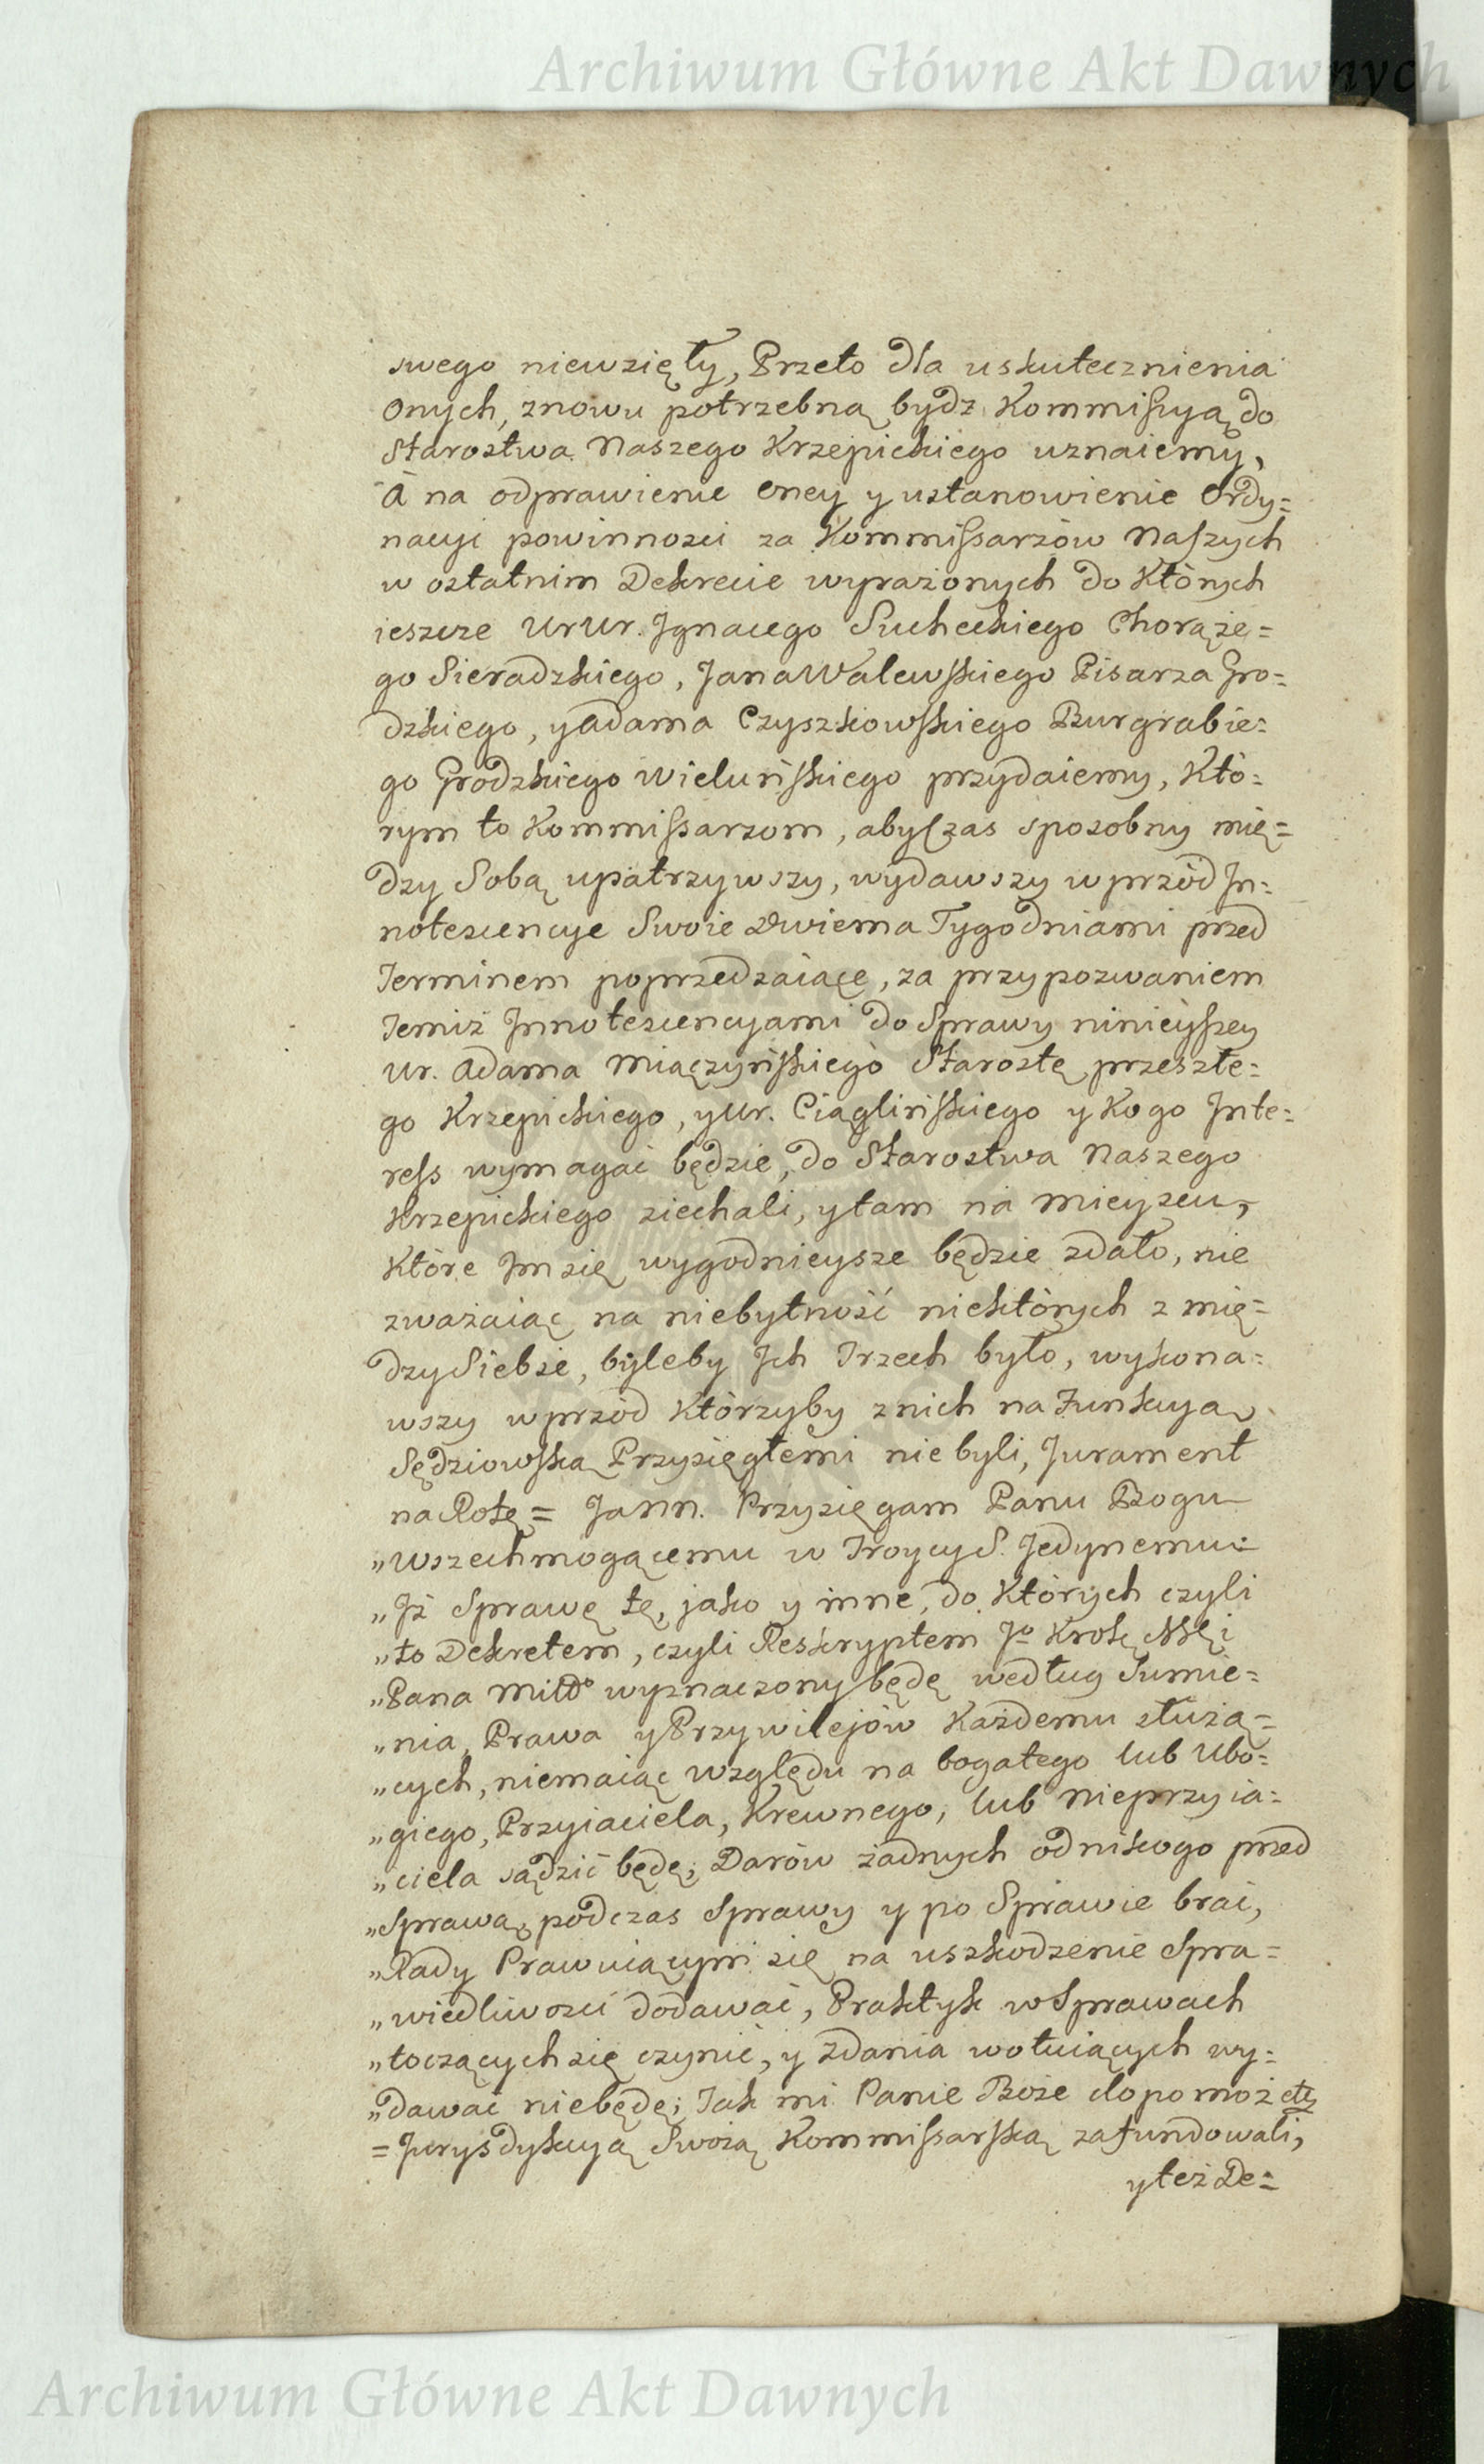 Archiwum Główne Akt Dawnych
swego niewzięły, Przeto dla uskutecznienia
Onych, znowu potrzebną bydz Kommissyą do
Starostwa Naszego Krzepickiego uznaiemy,
A na odprawienie oney y ustanowienie Ordy=
nacyi powinnosci za Kommissarzów Naszych
w ostatnim Dekrecie wyrażonych do Których
ieszcze UrUr. Jgnacego Sucheckiego Chorąże=
go Sieradzkiego, Jana Walewskiego Pisarza Gro=
dzkiego, y Adama Czyszkowskiego Burgrabie=
go Grodzkiego Wieluńskiego przydaiemy, Któ=
rym to Kommissarzom, aby Czas sposobny mię=
dzy Sobą upatrzywszy, wydawszy wprzód Jn=
notescencye Swoie Dwiema Tygodniami przed
Terminem poprzedzaiące, za przypozwaniem
Temiż Jnnotescencyami do Sprawy ninieyszey
Ur. Adama Miączyńskiego Starostę przeszłe=
go Krzepickiego, y Ur. Ciąglińskiego y Kogo Jnte=
ress wymagać będzie, do Starostwa Naszego
Krzepickiego ziechali, y tam na mieyscu,
Które Jm się wygodnieysze będzie zdało, nie
zważaiąc na niebytność niektórych z mię=
dzy Siebie, byleby Jch Trzech było, wykona=
wszy wprzód Którzyby z nich na Funkcyą
Sędziowską Przysięgłemi nie byli, Jurament
na Rotę = Ja NN. Przysięgam Panu Bogu
„Wszechmogącemu w Troycy S. Jedynemu:
„Jż Sprawę tę, jako y inne, do Których czyli
„to Dekretem, czyli Reskryptem Jº Krolę Mſċi
„Pana Miłº wyznaczony będę według Sumie=
„nia, Prawa y Przywilejów Każdemu służą=
„cych, niemaiąc względu na bogatego lub Ubo=
„giego, Przyiaciela, Krewnego, lub nieprzyia=
„ciela sądzić będę; Darów żadnych od nikogo przed
„Sprawą, podczas Sprawy y po Sprawie brać,
„Rady Prawuiącym się na uszkodzenie Spra=
„wiedliwosci dodawać, Praktyk w Sprawach
„toczących się czynić, y zdania wotuiących wy=
„dawać niebędę; Tak mi Panie Boże dopomoż etz
=Jurysdykcyą Swoią Kommissarską zafundowali,
y też De=
Archiwum Główne Akt Dawnych